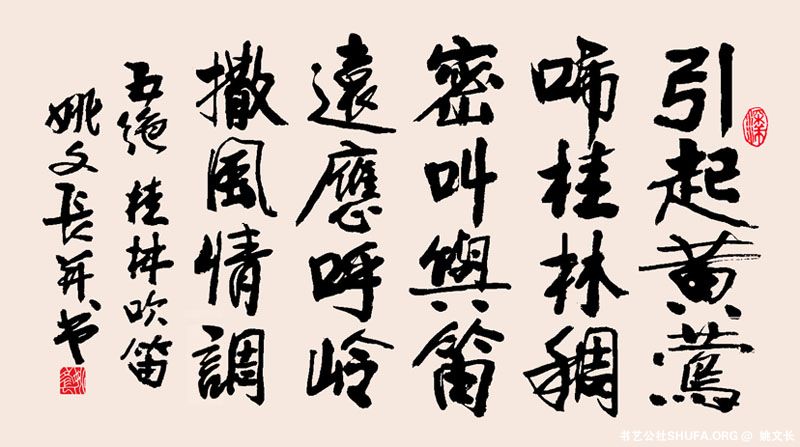 引起黄鶯
啼桂林稠
密叫與笛
遠應呼岭
撒風情調
五絕 桂林吹笛
姚文長并书
书艺公社SHUFA.ORG @ 姚文长